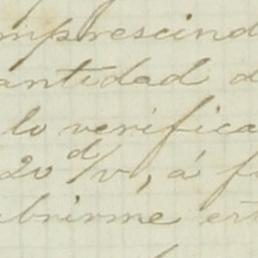 imprescind
antidad d
lo verifica
20 d/v, á f
brirme est